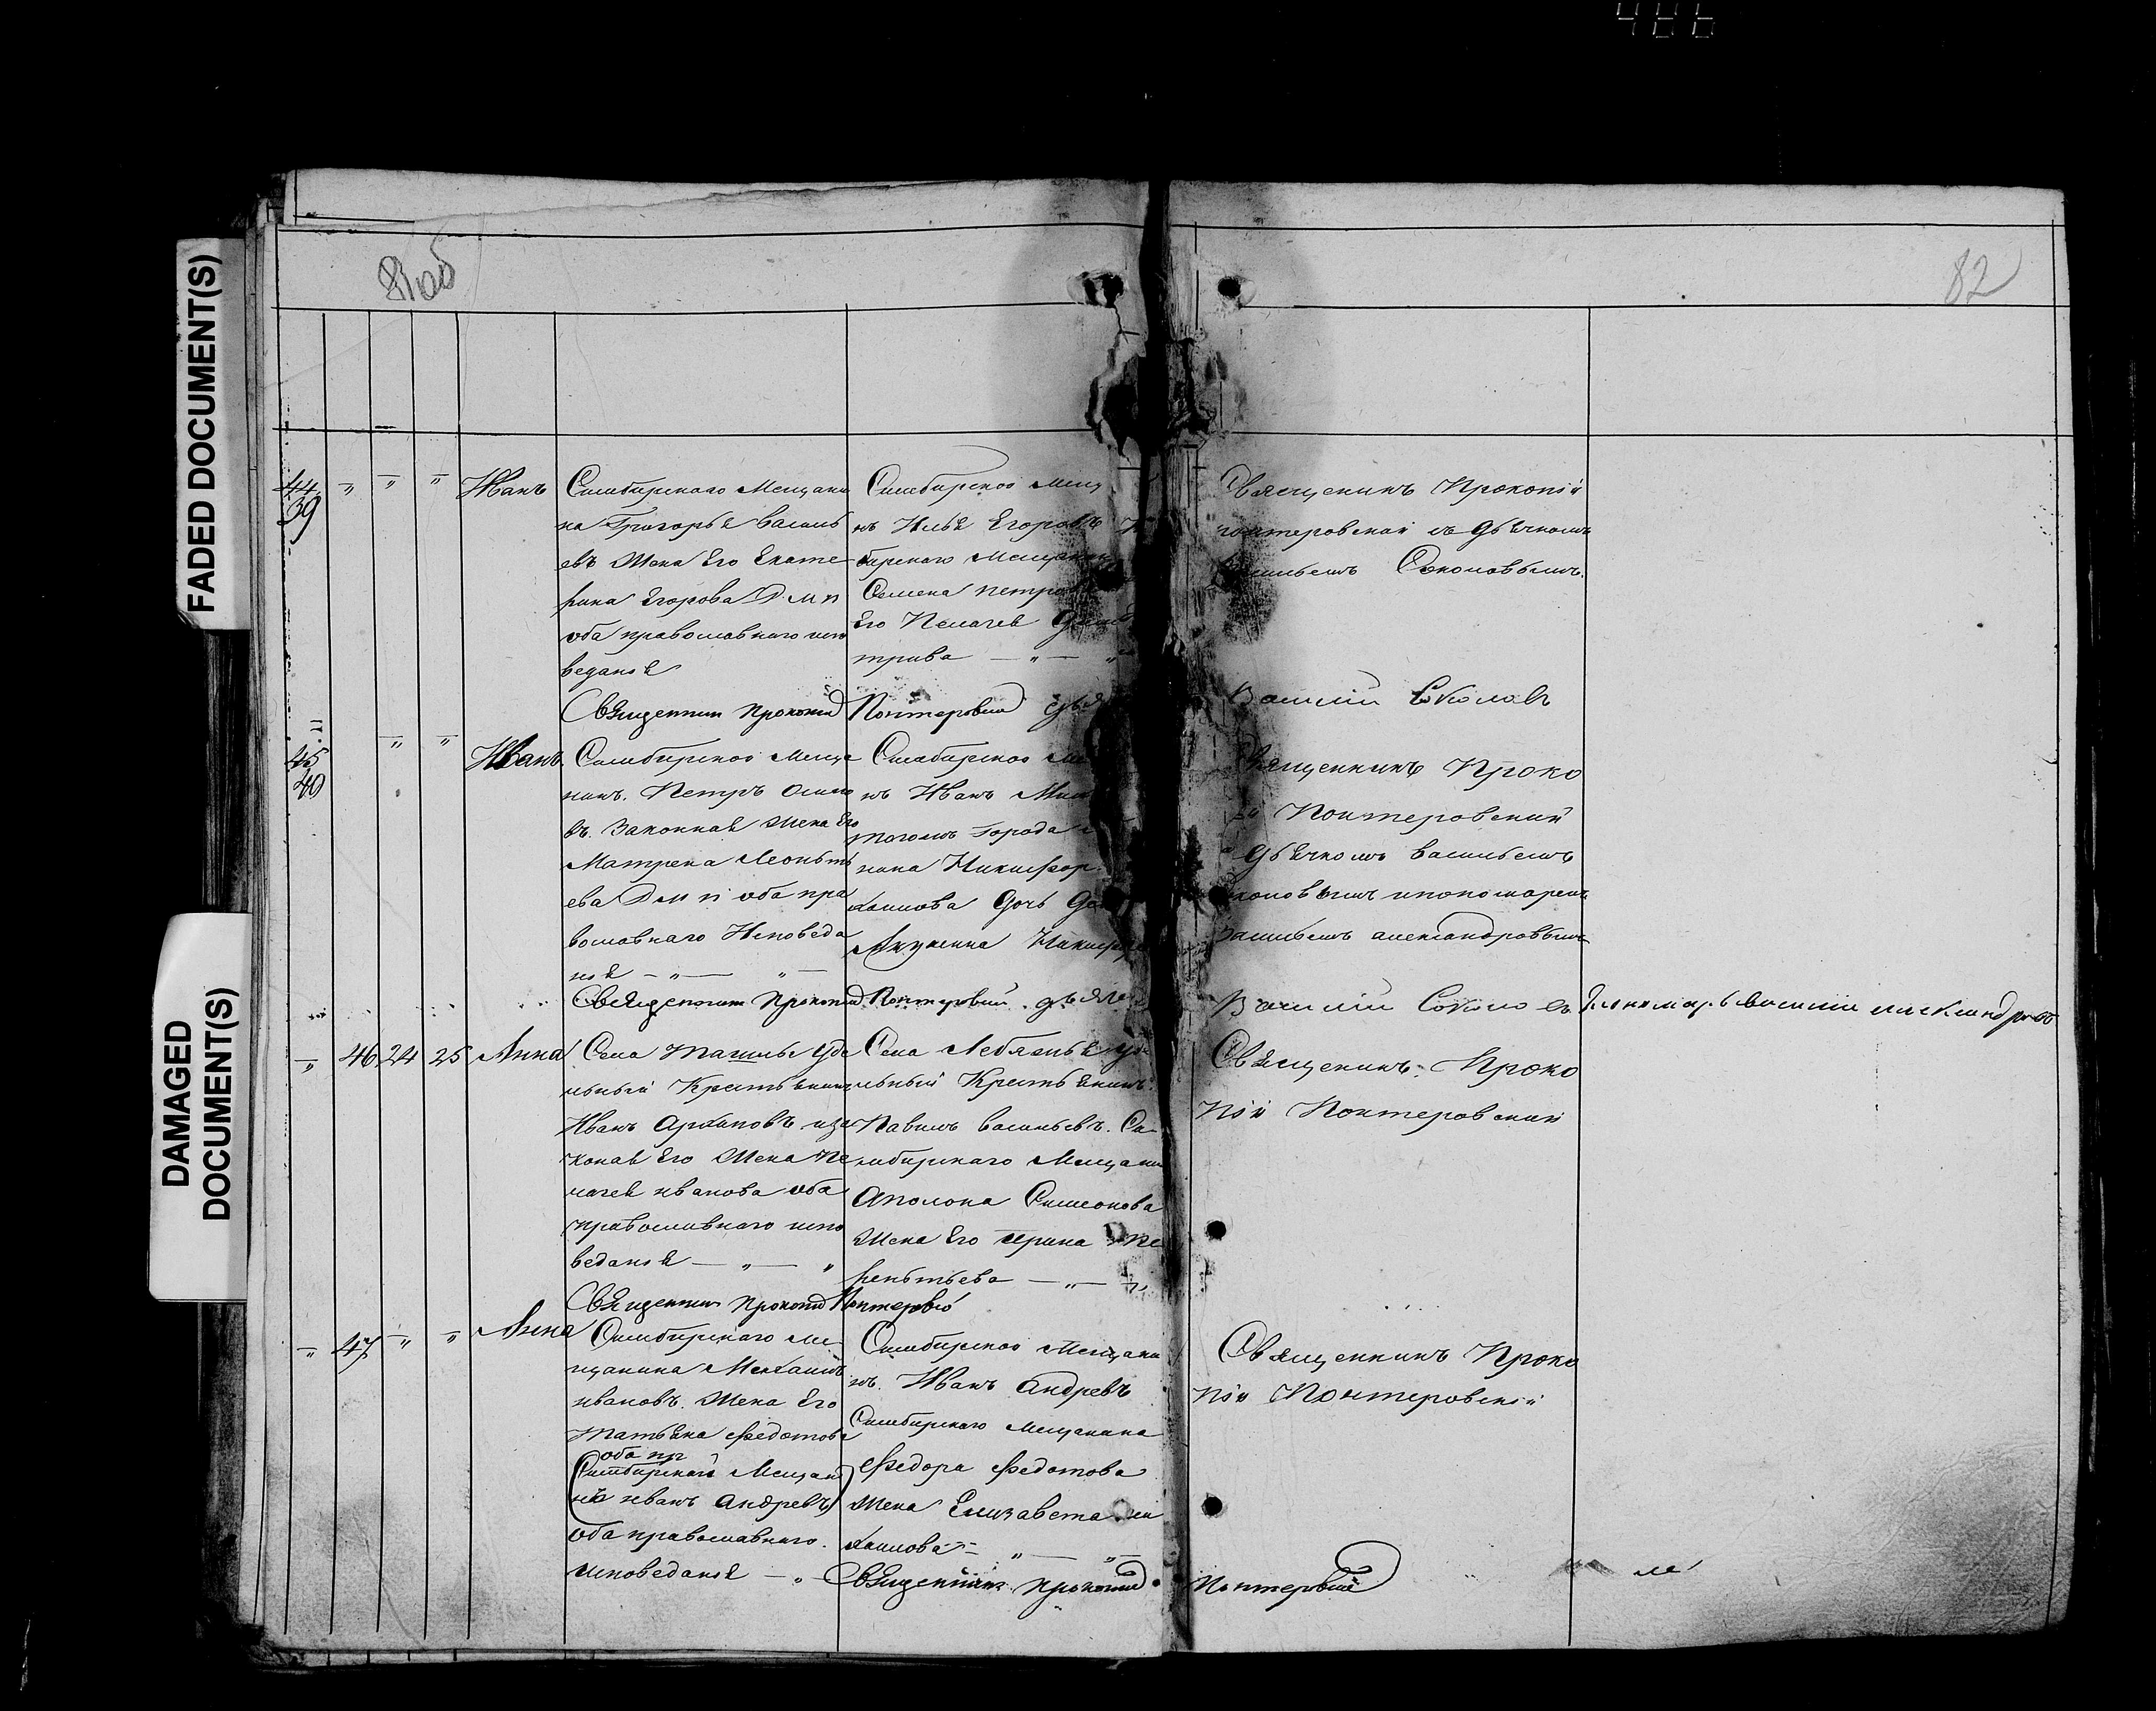 FADED DOCUMENT(S)
DAMAGED
DOCUMENT(S)
81об
82
44
39
Иванъ
Симбирскаго Мещани
на Григорья Василь
евъ Жена Его Екате
рина Егорова
оба православнаго испо
веданія
Симбирской Мещ
нъ Илья Егоровъ
бирскаго Мещанин
Семена Петров
Его Пелагея
трива
Священникъ Прокопій
Понтеровскій съ дьячкомъ
Васильемъ Соколовымъ.
Священникъ Прокопій Понтеровскій дья
Василій Соколовъ
45
40
Иванъ
Симбирской Меща
нинъ. Петръ Осипо
въ. Законная Жена Его
Матрена Леонть
ева оба пра
вославнаго Исповеда
нія
Симбирской Ме
нъ Иванъ
тогожъ города
нина Никифор
дочь
Акулина Никифор
Священникъ Проко
ій Понтеровскій
дьячкомъ Васильемъ
коловымъ и пономаремъ
Васильемъ Александровымъ
Священникъ Прокопій Понтеровскій дьяч
Василій Соколовъ Пономарь Василій Александровъ
46 24 25 Анна
Села Уде
льный Крестьянинъ
Иванъ Архиповъ иза
коная Его Жена Пе
лагея Иванова оба
православнаго испо
веданія
Села Лебяжья Уде
льный Крестьянинъ
Павелъ Васильевъ. Си
мбирскаго Мещани
Аполона Симеонова
Жена Его Ирина Те
рентьева
Священникъ Проко
пій Понтеровскій
Священникъ Прокопій Понтеровскій
47 Анна
Симбирскаго Ме
щанина Михаилъ
Ивановъ. Жена Его
Татьяна Федотова
оба пр
(Симбирскаго Мещани
нъ Иванъ Андревъ)
оба православнаго.
исповеданія
Симбирской Мещани
нъ. Иванъ Андревъ
Симбирскаго Мещанина
Федора Федотова
Жена Елизавета Ми
хаилова
Священникъ Проко
пій Понтеровскій
Священникъ Прокопій Понтеровскій